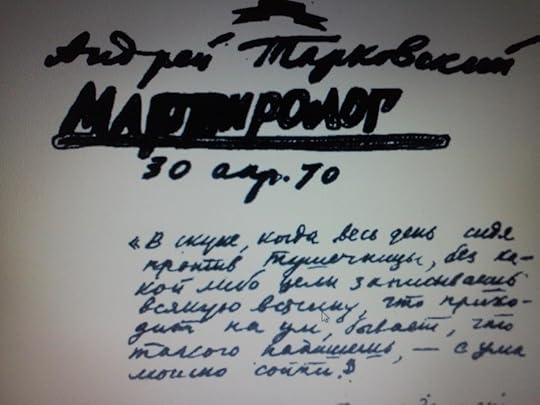 Андрей Тарковский
МАРТИРОЛОГ
30 апр. 70
«В скуке, когда весь день сидя
против тушечницы, без ка-
кой либо цели записываешь
всякую всячину, что прихо-
дит на ум, бывает, что
такого напишешь, — с ума
можно сойти.»